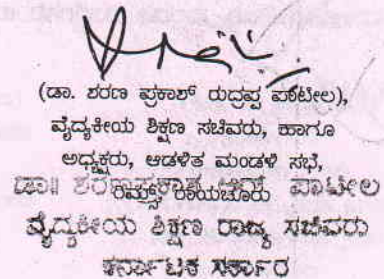 (ಡಾ. ಶರಣ ಪ್ರಕಾಶ್ ರುದ್ರಪ್ಪ ಪಾಟೀಲ),
ವೈದ್ಯಕೀಯ ಶಿಕ್ಷಣ ಸಚಿವರು, ಹಾಗೂ
ಅಧ್ಯಕ್ಷರು, ಆಡಳಿತ ಮಂಡಳಿ ಸಭೆ,
ರಿಮ್ಸ್, ರಾಯಚೂರು
ಡಾ॥ ಶರಣಪ್ರಕಾಶ ಆರ್. ಪಾಟೀಲ
ವೈದ್ಯಕೀಯ ಶಿಕ್ಷಣ ರಾಜ್ಯ ಸಚಿವರು
ಕರ್ನಾಟಕ ಸರ್ಕಾರ